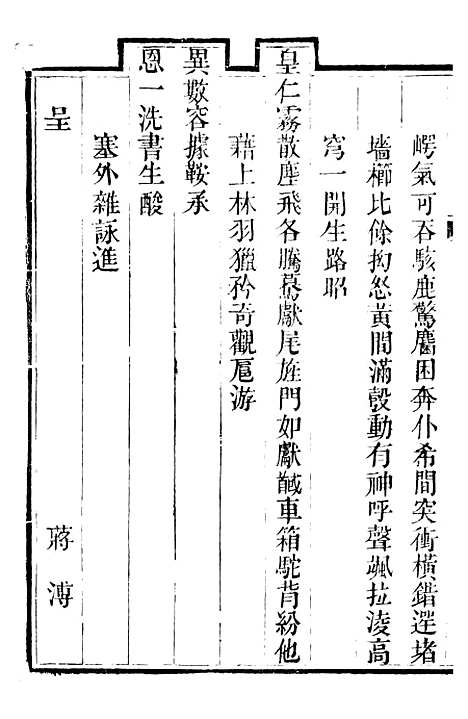 崿氣可吞駭鹿驚麕困奔仆希間突衝横錯逕堵
墻櫛比餘拘怒黃間滿彀動有神呼聲颯拉凌高
穹一開生路昭
皇仁霧散塵飛各騰驀獻尾旌門如獻馘車箱駝背紛他
藉上林羽獵矜奇觀扈游
異數容據鞍承
恩一洗書生酸
塞外雜詠進
呈
蔣溥